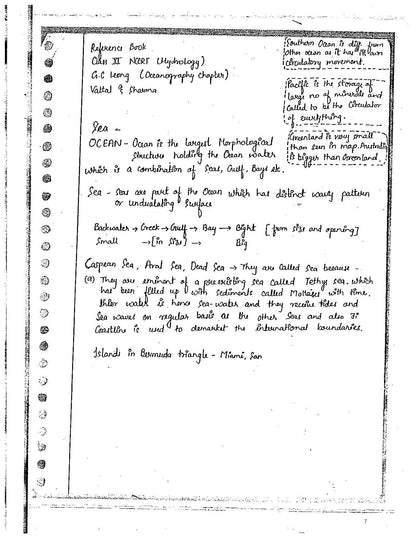 Reference Book
Class XI NCERT (Hydrology)
G.C Leong (Oceanography chapter)
Vattal & Sharma
Southern Ocean is diff. from
other ocean as it has its own
circulatory movement.
Pacific is the storage of
large no of minerals and
called to be the Circulator
of everything.
Greenland is very small
than seen in map. Australia
is bigger than Greenland.
Sea -
OCEAN - Ocean is the largest Morphological
Structure holding the Ocean water
which is a combination of Seas, Gulf, Bays etc.
Sea - Seas are part of the Ocean which has distinct wavy pattern
or undulating surface
Backwater → Creek → Gulf → Bay → Bight [from size and opening]
Small → [in size] → Big
Caspean Sea, Aral Sea, Dead Sea → They are called Sea because -
(a) They are eminent of a preexisting sea called Tethys sea. which
has been filled up with sediments called with time.
water is hence sea-water and they receive tides and
Sea waves on regular basis as the other Seas and also
Coastline is used to demarket the international boundaries.
Islands in Bermuda triangle - Miami, San
7